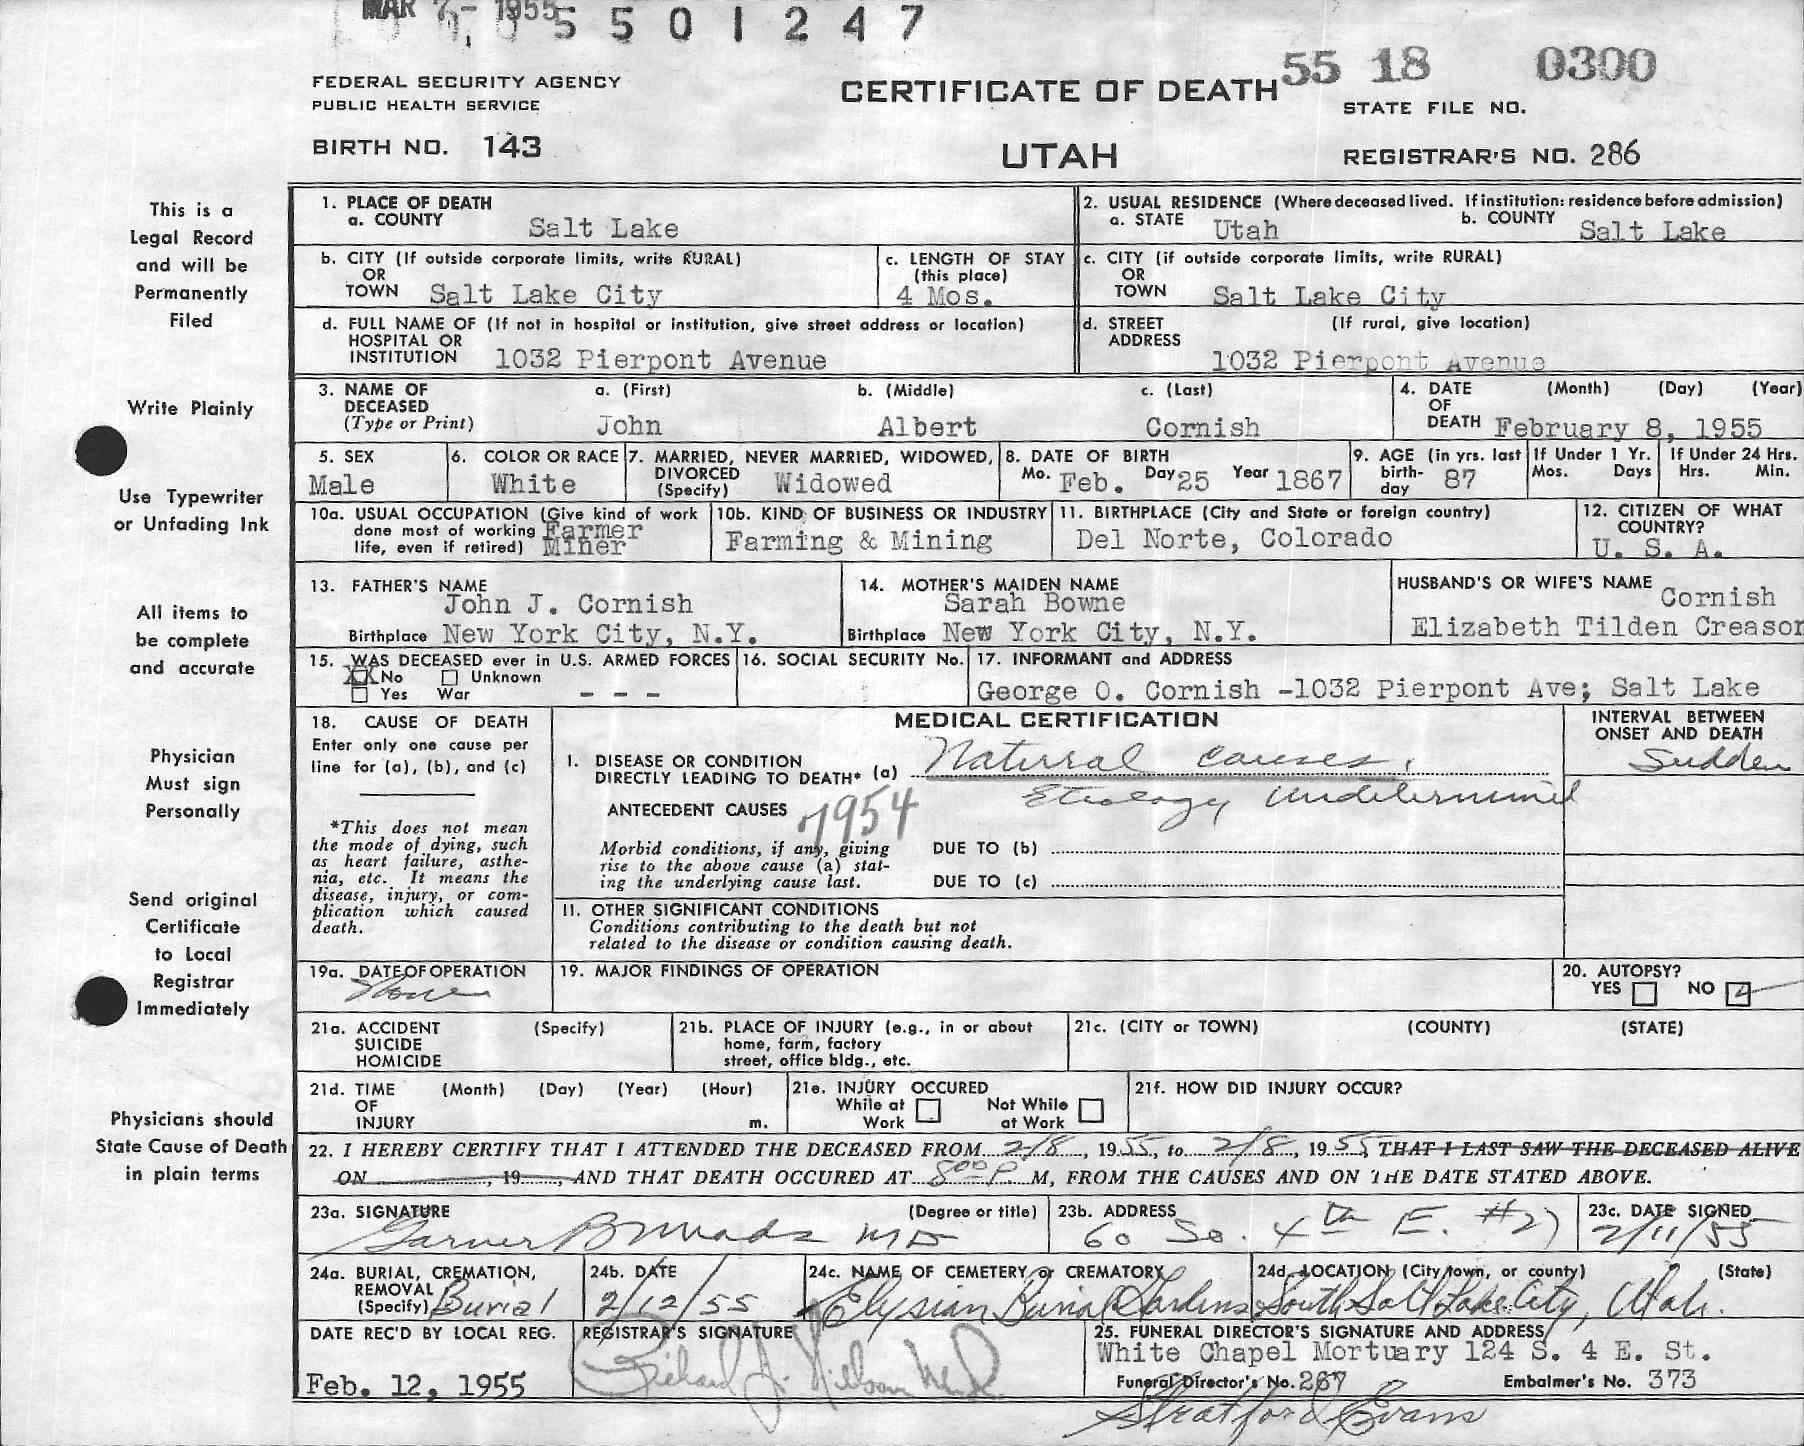 MAR 7 - 1955
5 5 0 1 2 4 7
55 18 0300
FEDERAL SECURITY AGENCY
PUBLIC HEALTH SERVICE
CERTIFICATE OF DEATH
STATE FILE NO.
BIRTH NO. 143
UTAH
REGISTRAR'S NO. 286
This is a
Legal Record
and will be
Permanently
Filed
Write Plainly
Use Typewriter
or Unfading Ink
All items to
be complete
and accurate
Physician
Must sign
Personally
Send original
Certificate
to Local
Registrar
Immediately
Physicians should
State Cause of Death
in plain terms
1. PLACE OF DEATH
a. COUNTY Salt Lake
2. USUAL RESIDENCE (Where deceased lived. If institution: residence before admission)
a. STATE Utah b. COUNTY Salt Lake
b. CITY (If outside corporate limits, write RURAL)
OR
TOWN Salt Lake City
c. LENGTH OF STAY
(this place)
4 Mos.
c. CITY (if outside corporate limits, write RURAL)
OR
TOWN Salt Lake City
d. FULL NAME OF (If not in hospital or institution, give street address or location)
HOSPITAL OR
INSTITUTION 1032 Pierpont Avenue
d. STREET (If rural, give location)
ADDRESS
1032 Pierpont Avenue
3. NAME OF a. (First) b. (Middle) c. (Last)
DECEASED
(Type or Print) John Albert Cornish
4. DATE (Month) (Day) (Year)
OF
DEATH February 8, 1955
5. SEX
Male
6. COLOR OR RACE
White
7. MARRIED, NEVER MARRIED, WIDOWED,
DIVORCED
(Specify) Widowed
8. DATE OF BIRTH
Mo. Feb. Day 25 Year 1867
9. AGE (in yrs. last
birth-
day 87
If Under 1 Yr.
Mos. Days
If Under 24 Hrs.
Hrs. Min.
10a. USUAL OCCUPATION (Give kind of work
done most of working Farmer
life, even if retired) Miner
10b. KIND OF BUSINESS OR INDUSTRY
Farming & Mining
11. BIRTHPLACE (City and State or foreign country)
Del Norte, Colorado
12. CITIZEN OF WHAT
COUNTRY?
U. S. A.
13. FATHER'S NAME
John J. Cornish
Birthplace New York City, N.Y.
14. MOTHER'S MAIDEN NAME
Sarah Bowne
Birthplace New York City, N.Y.
HUSBAND'S OR WIFE'S NAME Cornish
Elizabeth Tilden Creasor
15. WAS DECEASED ever in U.S. ARMED FORCES
XX No Unknown
Yes War - - -
16. SOCIAL SECURITY No.
17. INFORMANT and ADDRESS
George O. Cornish -1032 Pierpont Ave; Salt Lake
18. CAUSE OF DEATH
Enter only one cause per
line for (a), (b), and (c)
*This does not mean
the mode of dying, such
as heart failure, asthe-
nia, etc. It means the
disease, injury, or com-
plication which caused
death.
MEDICAL CERTIFICATION
INTERVAL BETWEEN
ONSET AND DEATH
Sudden
I. DISEASE OR CONDITION
DIRECTLY LEADING TO DEATH* (a) Natural causes,
Etiology undetermined
ANTECEDENT CAUSES 7954
Morbid conditions, if any, giving
rise to the above cause (a) stat-
ing the underlying cause last.
DUE TO (b)
DUE TO (c)
II. OTHER SIGNIFICANT CONDITIONS
Conditions contributing to the death but not
related to the disease or condition causing death.
19a. DATE OF OPERATION
None
19. MAJOR FINDINGS OF OPERATION
20. AUTOPSY?
YES NO
21a. ACCIDENT (Specify)
SUICIDE
HOMICIDE
21b. PLACE OF INJURY (e.g., in or about
home, farm, factory
street, office bldg., etc.
21c. (CITY or TOWN) (COUNTY) (STATE)
21d. TIME (Month) (Day) (Year) (Hour)
OF
INJURY m.
21e. INJURY OCCURED
While at Not While
Work at Work
21f. HOW DID INJURY OCCUR?
22. I HEREBY CERTIFY THAT I ATTENDED THE DECEASED FROM 2/8, 1955, to 2/8, 1955, THAT I LAST SAW THE DECEASED ALIVE
ON , 19 , AND THAT DEATH OCCURED AT 8:00 P. M, FROM THE CAUSES AND ON THE DATE STATED ABOVE.
23a. SIGNATURE (Degree or title)
MD
23b. ADDRESS
60 So. 4th E. #27
23c. DATE SIGNED
2/11/55
24a. BURIAL, CREMATION,
REMOVAL
(Specify) Burial
24b. DATE
2/12/55
24c. NAME OF CEMETERY or CREMATORY
Elysian Burial Gardens
24d. LOCATION (City town, or county) (State)
South Salt Lake City, Utah.
DATE REC'D BY LOCAL REG.
Feb. 12, 1955
REGISTRAR'S SIGNATURE
Richard J. Nielson
25. FUNERAL DIRECTOR'S SIGNATURE AND ADDRESS
White Chapel Mortuary 124 S. 4 E. St.
Funeral Director's No. 267 Embalmer's No. 373
Stratford Evans